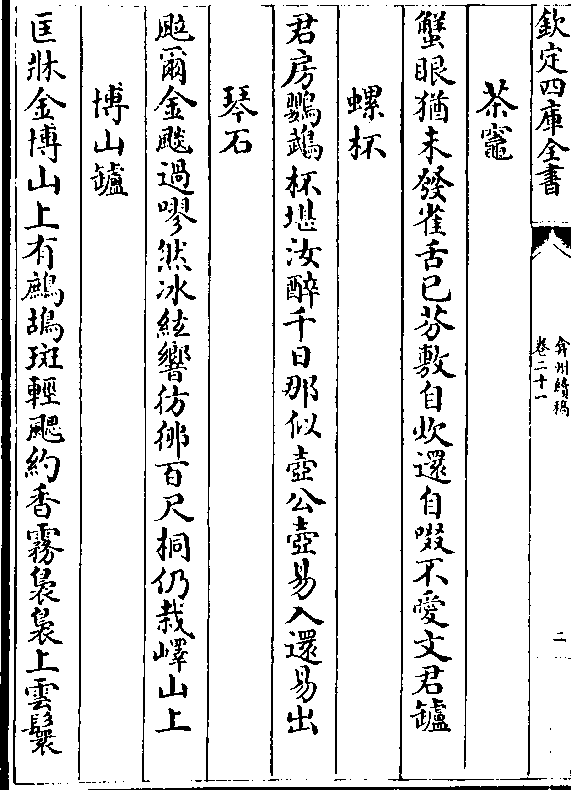 欽定四庫全書
弇州續稿
卷二十一
二
茶竈
蟹眼猶未發雀舌已芬敷自炊還自啜不愛文君罏
螺杯
君房鸚鵡杯堪汝醉千日那似壺公壺易入還易出
琴石
颯爾金飈過嘐然冰絃響彷彿百尺桐仍栽嶧山上
博山罏
匡牀金博山上有鷓鴣斑輕颸約香霧裊裊上雲鬟